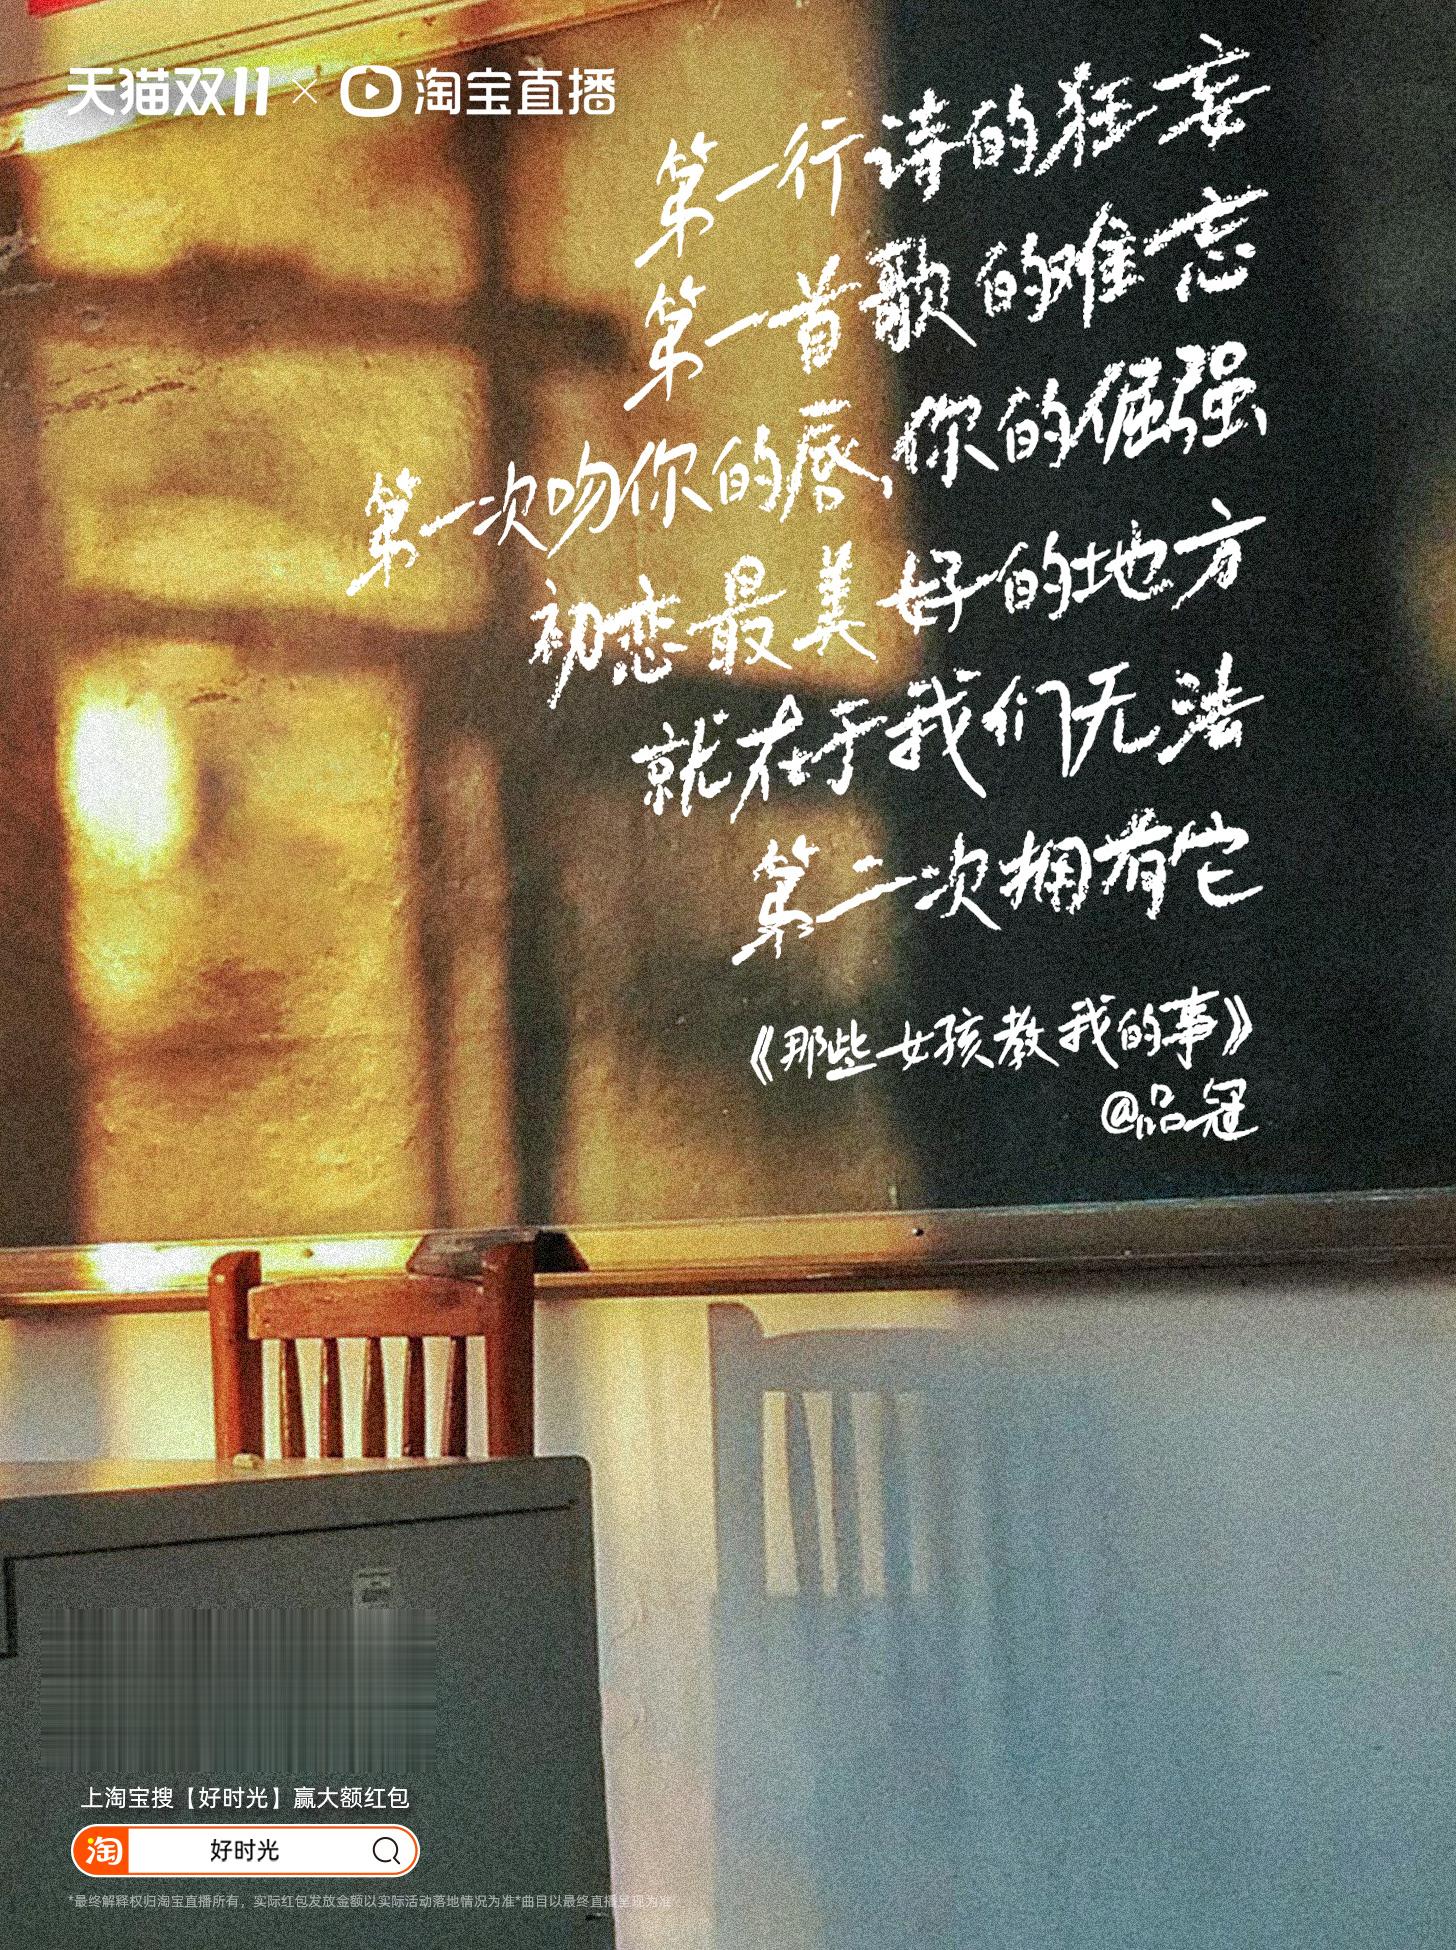 天猫双11 × 淘宝直播
第一行诗的狂妄
第一首歌的难忘
第一次吻你的唇,你的倔强
初恋最美好的地方
就在于我们无法
第二次拥有它
《那些女孩教我的事》
@品冠
上淘宝搜【好时光】赢大额红包
淘 好时光
*最终解释权归淘宝直播所有，实际红包发放金额以实际活动落地情况为准*曲目以最终直播呈现为准